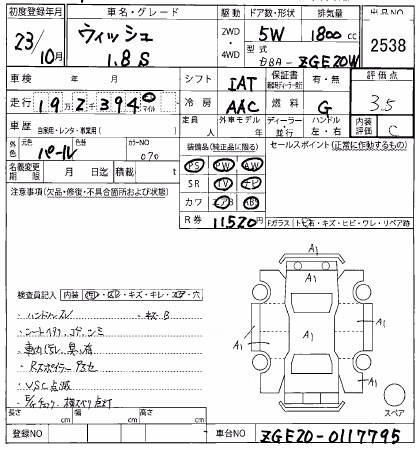 初度登録年月 車名・グレード 駆動 ドア数・形状 排気量 出品NO
23/10月 ウィッシュ 1.8S 2WD ・ 4WD 5W 1800cc 2538
型式 DBA- ZGE20W
車検 年 月 シフト IAT 保証書 有・無 評価点
走行 19万2千394 km マイル 冷房 AAC 燃料 G 3.5
車歴 自家用・レンタ・事業用( ) 定員 人 外車モデル 年 ディーラー・並行 ハンドル 左・右 内装評価 C
外色 元色 パール 色替 カラーNO 070
装備品(純正品に限る) セールスポイント(正常に作動するもの)
名義変更期限 月 日迄 積載 t
PS PW AW
注意事項(欠品・修復・不具合箇所および状態)
SR TV ナビ
カワ エアB AB
R券 11520円
Fガラス(トビ石・キズ・ヒビ・ワレ・リペア跡
検査員記入 内装
・ハンドルスレ ・キズB
・シートヘタリ コゲ シミ
・車内汚レ 臭い有
・Rスポイラー アセ
・VSC点滅
・E/gチェック・横スベリ点灯
A1
A1
A1
A1
A1
A1
スペア
長さ cm 幅 cm 高さ cm
登録NO 車台NO ZGE20-0117795